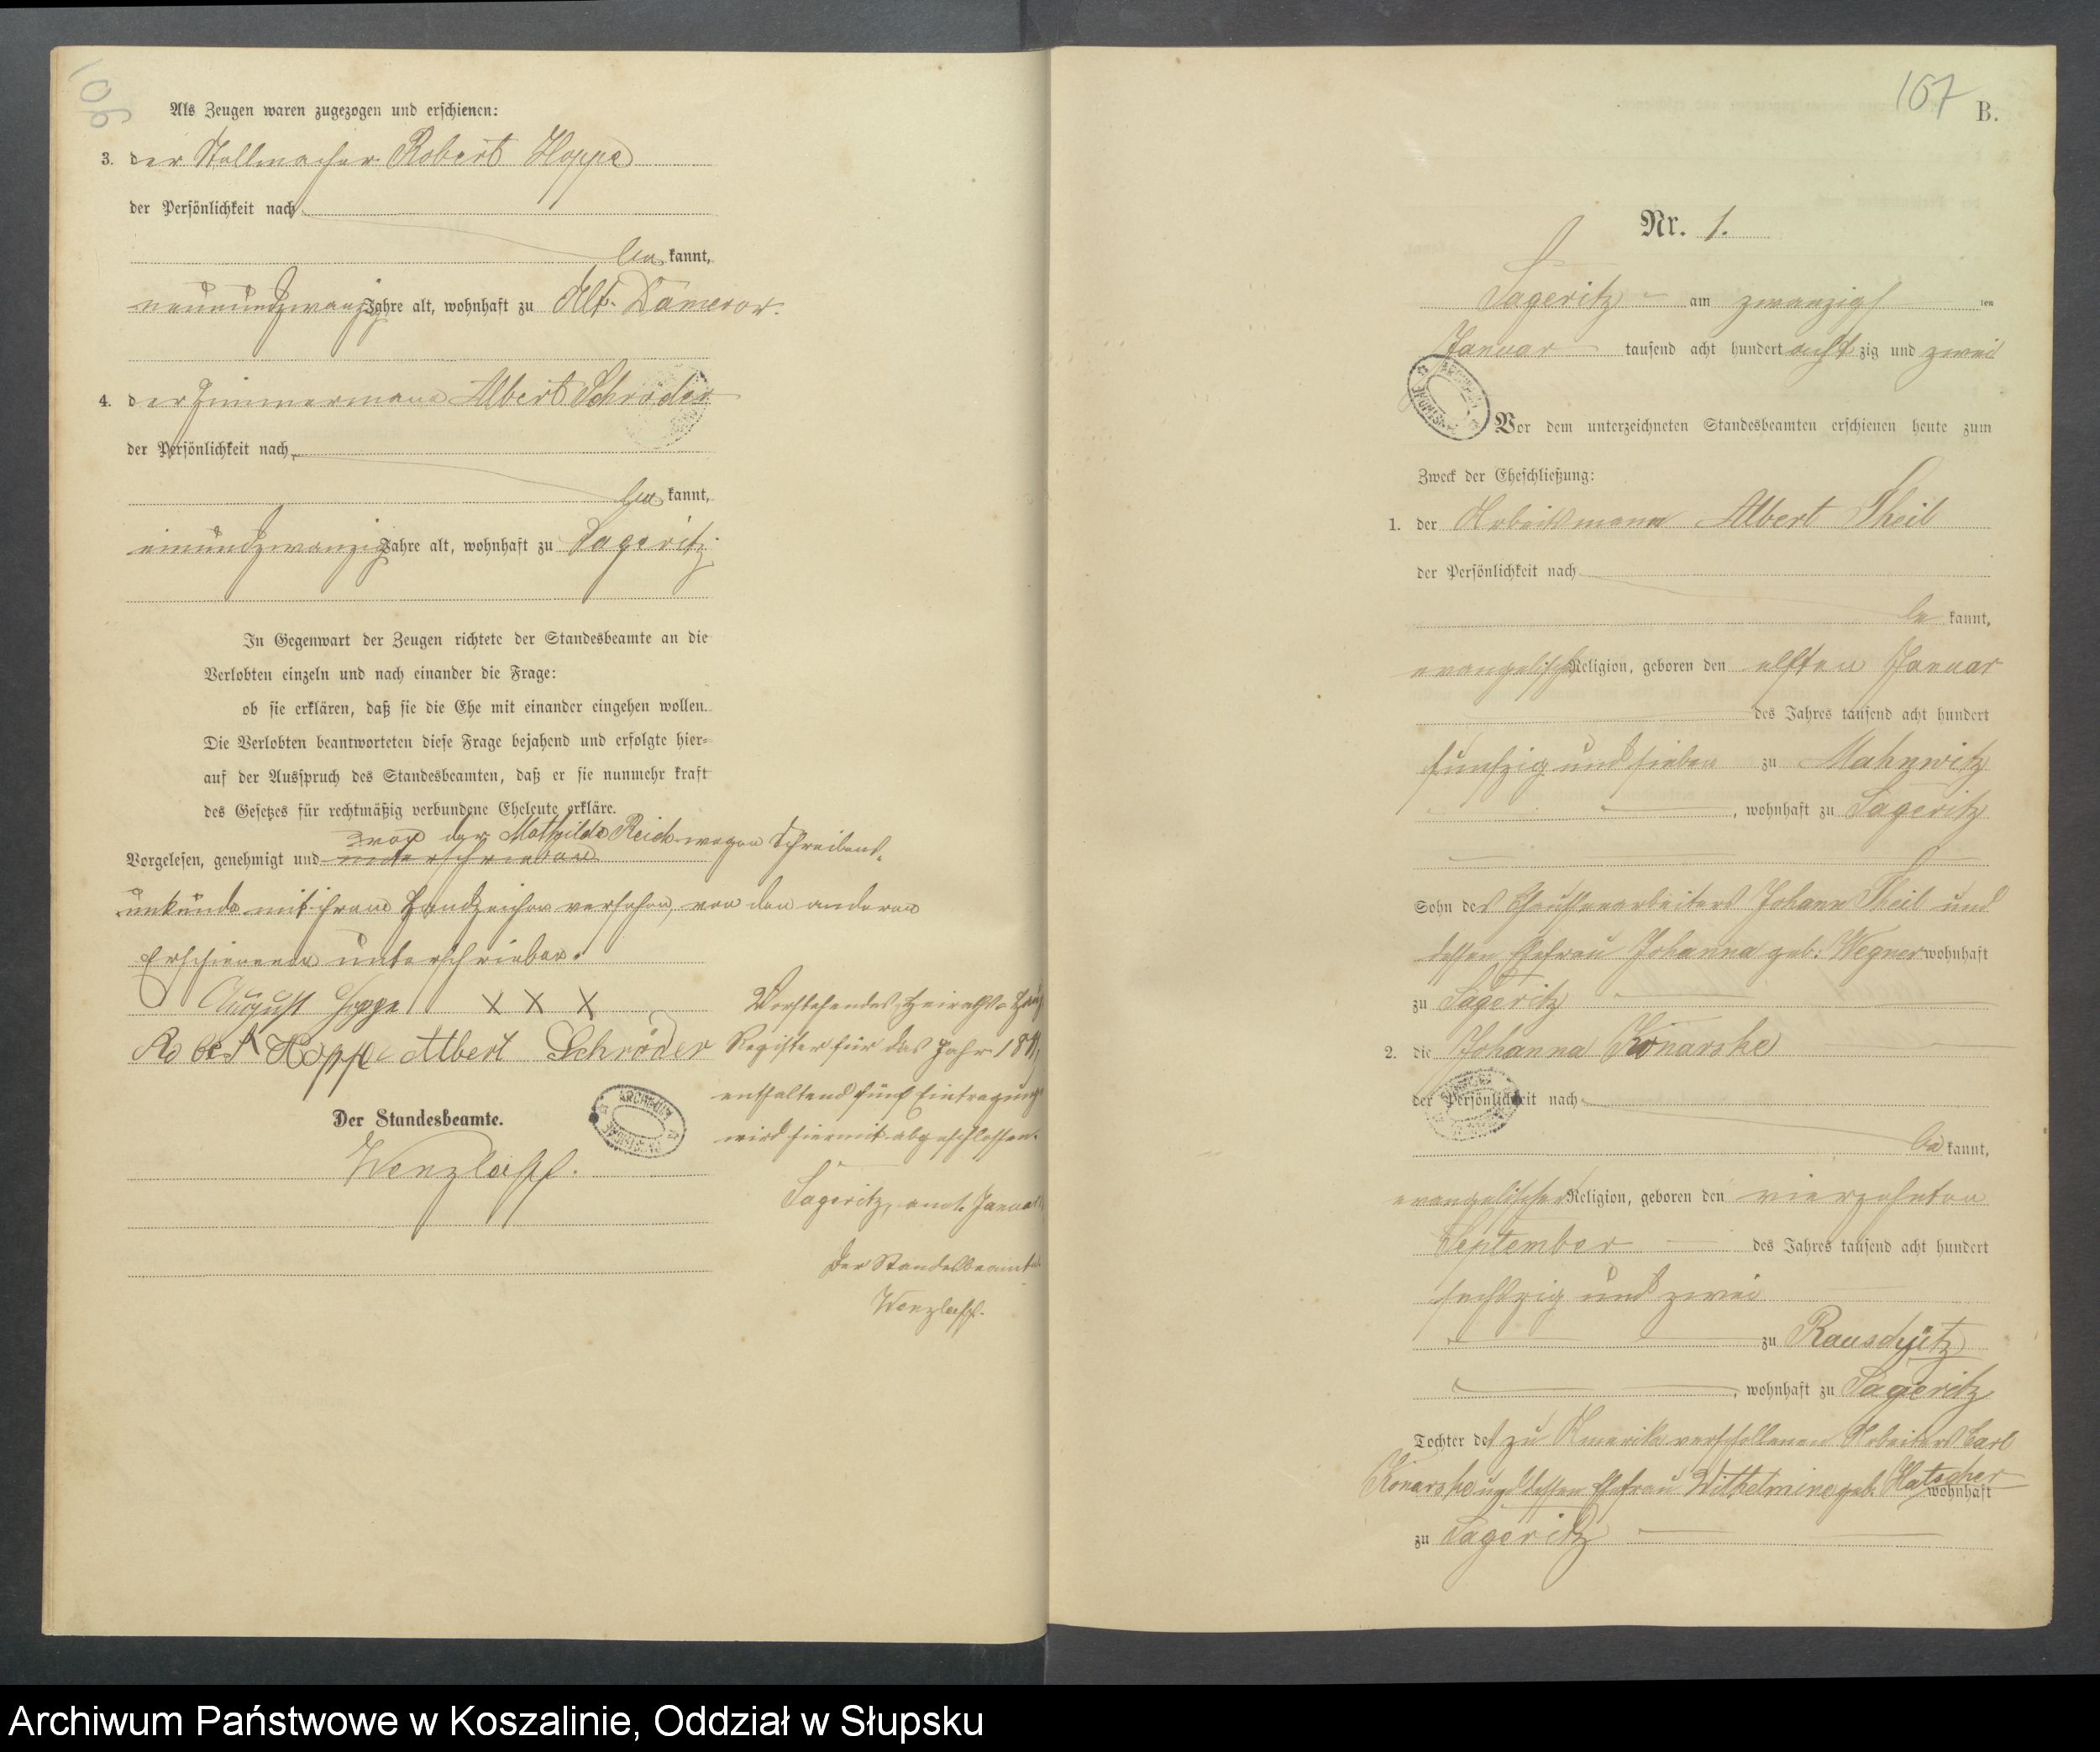 106
Als Zeugen waren zugezogen und erschienen:
3. der Stellmacher Robert Hoppe
der Persönlichkeit nach
be kannt,
neunundzwanzig Jahre alt, wohnhaft zu Alt-Damerow.
4. der Zimmermann Albert Schröder
der Persönlichkeit nach
be kannt,
einundzwanzig Jahre alt, wohnhaft zu Sageritz.
In Gegenwart der Zeugen richtete der Standesbeamte an die
Verlobten einzeln und nach einander die Frage:
ob sie erklären, daß sie die Ehe mit einander eingehen wollen.
Die Verlobten beantworteten diese Frage bejahend und erfolgte hier-
auf der Ausspruch des Standesbeamten, daß er sie nunmehr kraft
des Gesetzes für rechtmäßig verbundene Eheleute erkläre.
von der Mathilde Reich wegen Schreibens-
Vorgelesen, genehmigt und unterschrieben
unkunde mit ihrem Handzeichen versehen, von den anderen
Erschienenen unterschrieben.
August Hoppe X X X
Robert Hoppe Albert Schröder
Der Standesbeamte.
Wenzlaff.
Vorstehendes Heiraths-
Register für das Jahr
enthaltend fünf Eintragung
wird hiermit abgeschlossen.
Sageritz, am Januar
Der Standesbeamte
Wenzlaff.
167
B.
Nr. 1.
Sageritz am zwanzigs ten
Januar tausend acht hundert acht zig und zwei
Vor dem unterzeichneten Standesbeamten erschienen heute zum
Zweck der Eheschließung:
1. der Arbeitsmann Albert Theil
der Persönlichkeit nach
be kannt,
evangelischer Religion, geboren den elften Januar
des Jahres tausend acht hundert
funfzig und sieben zu Mahnwitz
, wohnhaft zu Sageritz
Sohn des Chausseearbeiters Johann Theil und
dessen Ehefrau Johanna geb. Wegner wohnhaft
zu Sageritz
2. die Johanna Konarske
der Persönlichkeit nach
be kannt,
evangelischer Religion, geboren den vierzehnten
September des Jahres tausend acht hundert
sechszig und zwei
zu Rauschütz
, wohnhaft zu Sageritz
Tochter des zu Amerika verschollenen Arbeiters Carl
Konarske und dessen Ehefrau Wilhelmine geb. Hatscher wohnhaft
zu Sageritz
Archiwum Państwowe w Koszalinie, Oddział w Słupsku